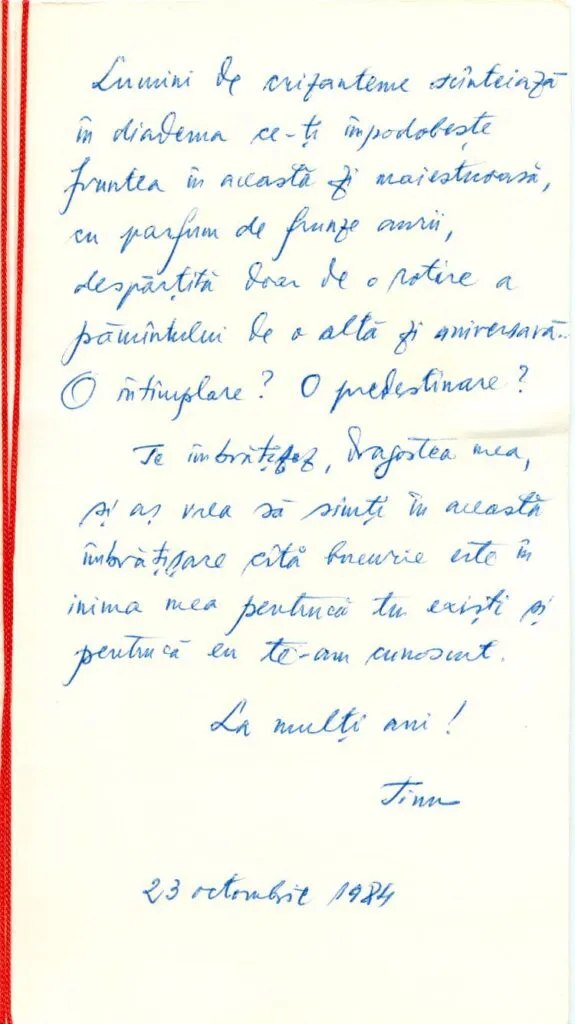 Lumini de crizanteme scînteiază
în diadema ce-ți împodobește
fruntea în această zi maiestuoasă,
cu parfum de frunze aurii,
despărțită doar de o rotire a
pămîntului de o altă zi aniversară..
O întîmplare? O predestinare?
Te îmbrățișez, dragostea mea,
și aș vrea să simți în această
îmbrățișare cîtă bucurie este în
inima mea pentrucă tu exiști și
pentrucă eu te-am cunoscut.
La mulți ani!
Tinu
23 octombrie 1984